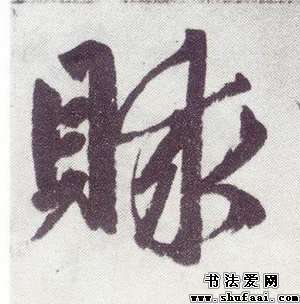 賕
书法爱网
www.shufaai.com